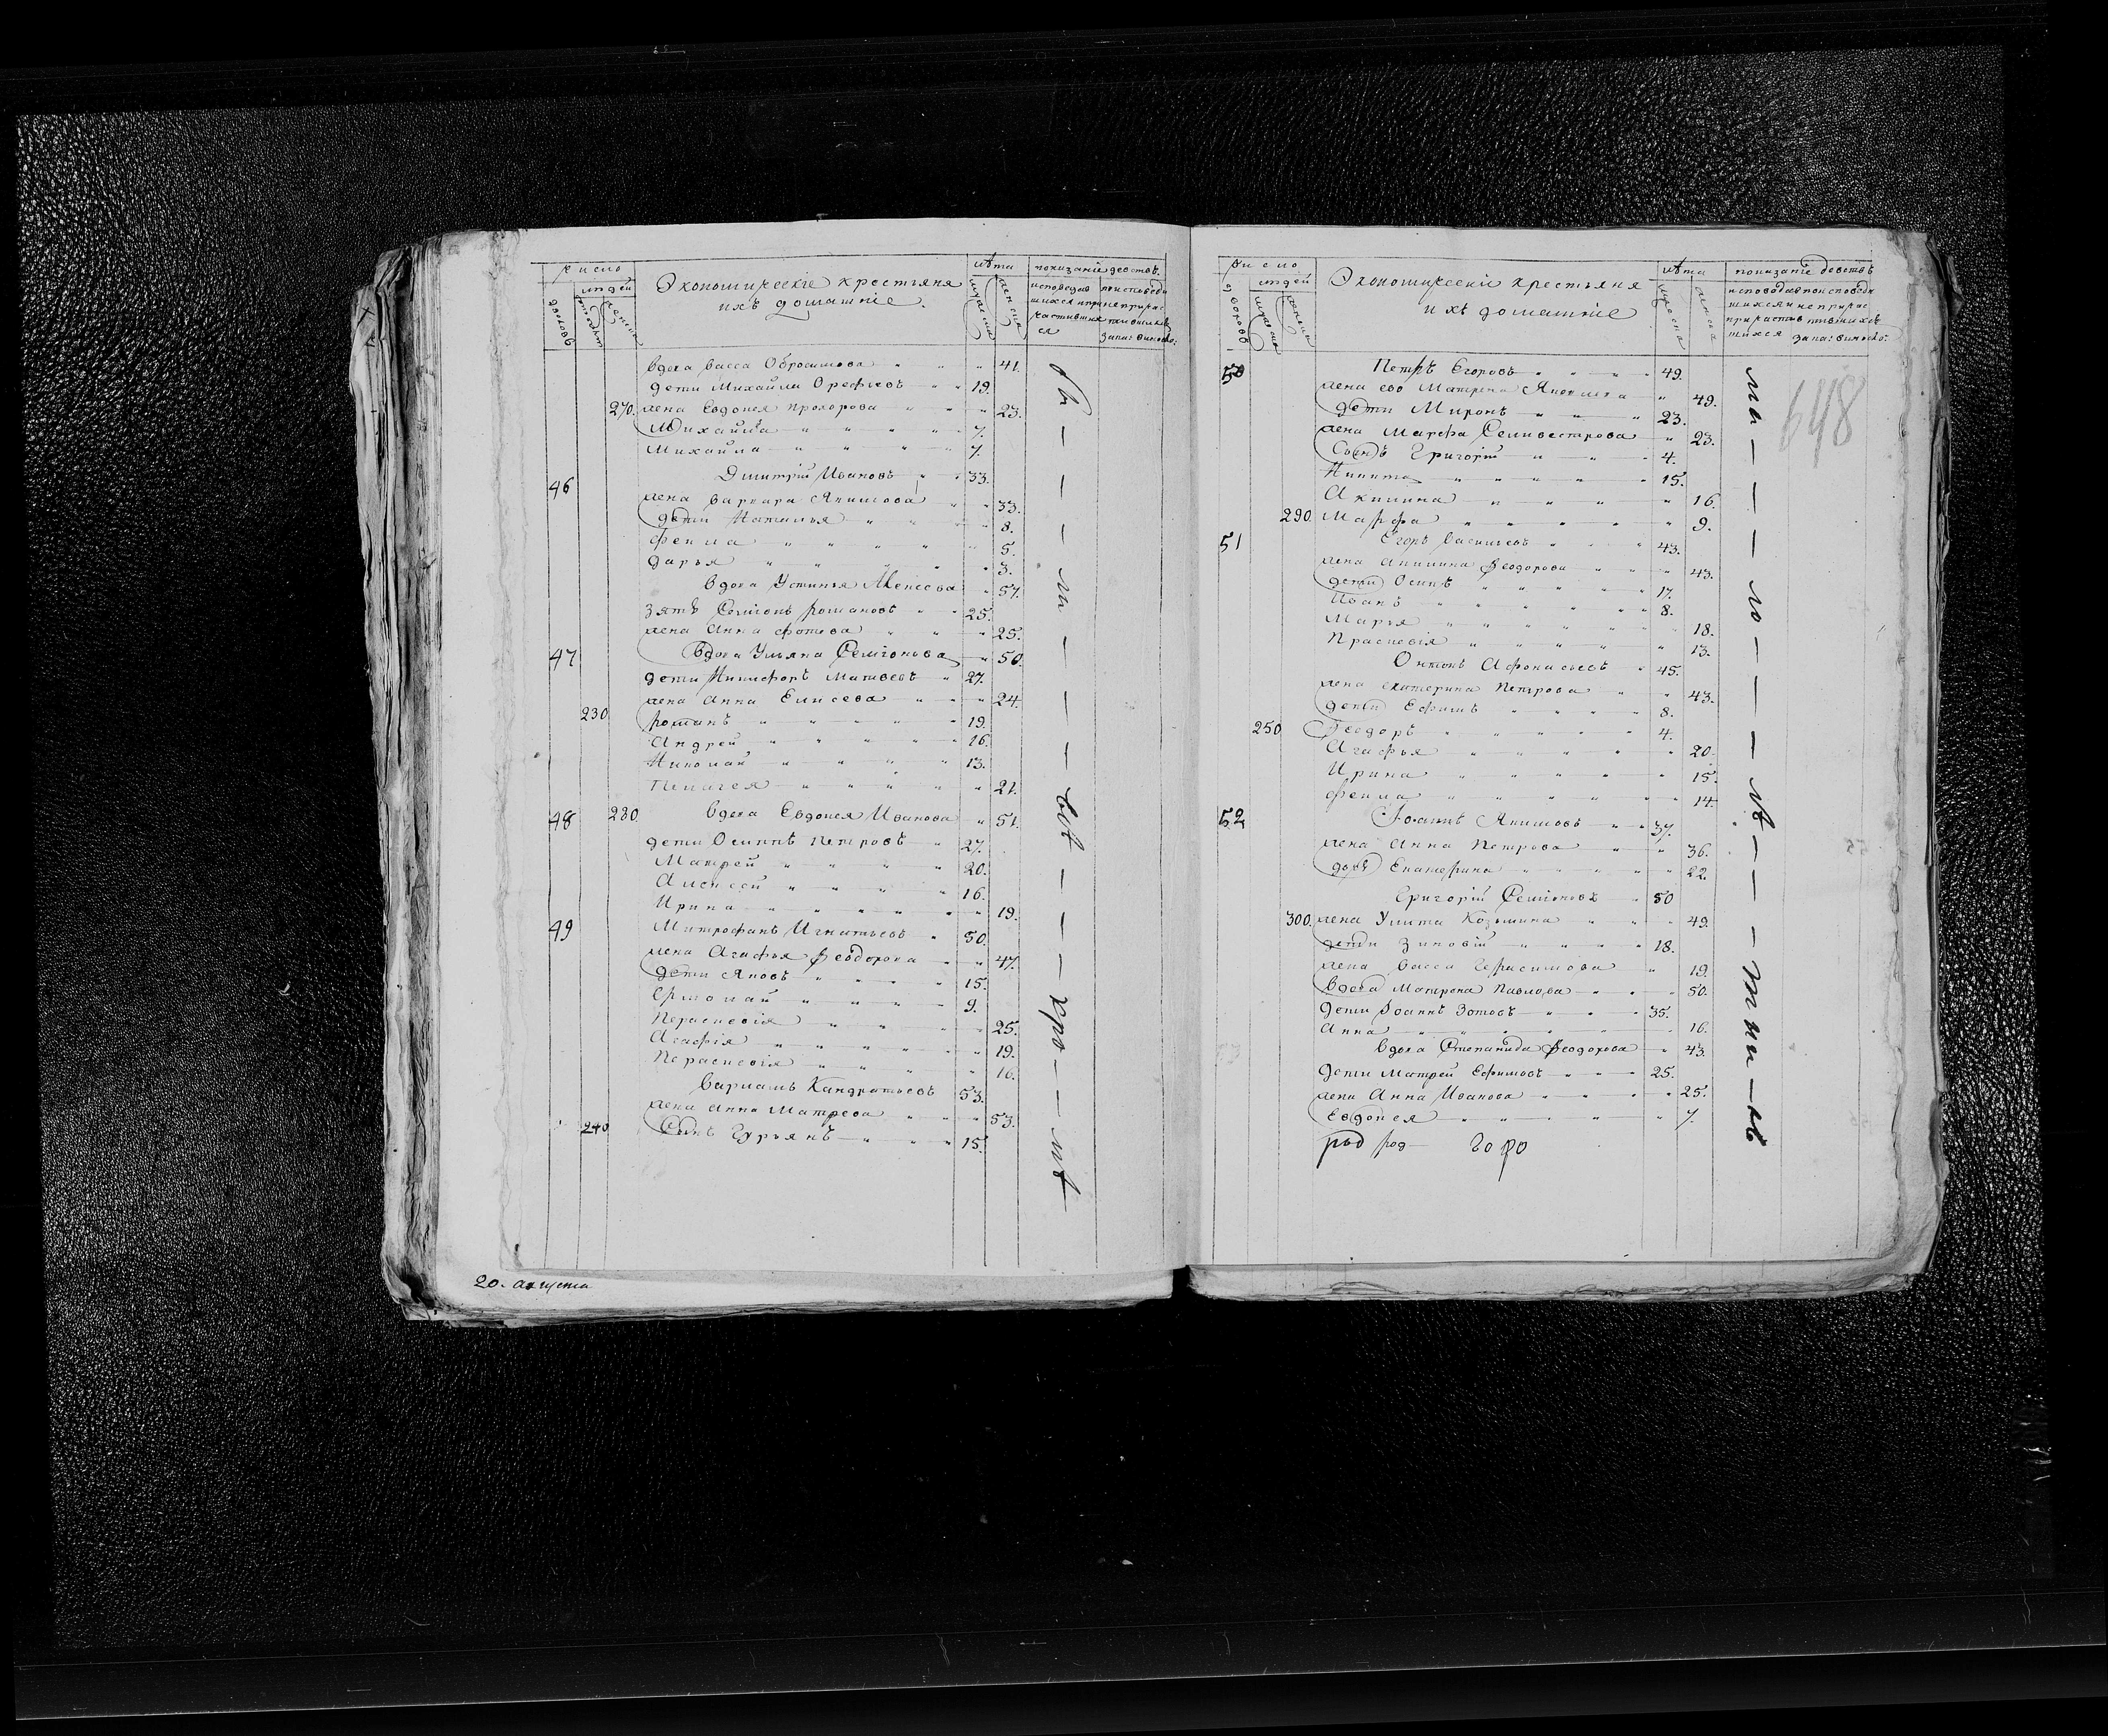 число
людей
дворовъ
Экономическіе крестьяня
ихъ домашніе
лѣта
показаніе действъ
вдова Васса Обросимова 41.
дети Михайла Орефьевъ 19.
270. жена Евдокея Прохорова 23.
Михайла 7.
Михайла 7.
46 Дмитрій Ивановъ 33.
жена Варвара Якимова 33.
дети Наталья 8.
Фекла 5.
Дарья 3.
вдова Устинья Алексеева 57.
зять Семіонъ Романовъ 25.
жена Анна Фотеева 25.
47 Вдова Ульяна Семіонова 50.
дети Никифоръ Матвеевъ 27.
жена Анна Елисеева 24.
230 Романъ 19.
Андрей 16.
Николай 13.
Пелагея 21.
48 280. вдова Евдокея Иванова 51.
дети Осипъ Петровъ 27.
Матфей 20.
Алексей 16.
Ирина 19.
49 Митрофанъ Игнатьевъ 50.
жена Агафья Феодорова 47.
дети Яковъ 15.
Ермолай 9.
Парасковія 25.
Агафія 19.
Парасковія 16.
Варламъ Кандратьевъ 53.
жена Анна Матфеева 53.
240 Сынъ Гурьянъ 15.
20. августа
число
людей
дворовъ
Экономическіи крестьяня
ихъ домашніе
лѣта
показаніе действъ
648
50 Петръ Егоровъ 49.
жена ево Матрена Яковлева 49.
дети Миронъ 23.
жена Марфа Селивестрова 23.
Сынъ Григорій 4.
Никита 15.
Акилина 16.
290. Марфа 9.
51 Егоръ Васильевъ 43.
жена Акилина Феодорова 43.
дети Осипъ 17.
Иванъ 8.
Марья 18.
Прасковія 13.
Онтонъ Афонасьевъ 45.
жена Екатерина Петрова 43.
дети Ефимъ 8.
250 Феодоръ 4.
Агафья 20.
Ирина 15.
Фекла 14
52 Іоаннъ Якимовъ 37.
жена Анна Петрова 36.
дочь Екатерина 22.
Григорій Семіоновъ 50
300. жена Улита Козьмина 49.
дети Зиновій 18.
жена Васса Герасимова 19.
вдова Матрена Павлова 50.
дети Іоаннъ Зотовъ 35.
Анна 16.
вдова Степанида Феодорова 43.
дети Матфей Ефимовъ 25.
жена Анна Иванова 25.
Евдокея 7.